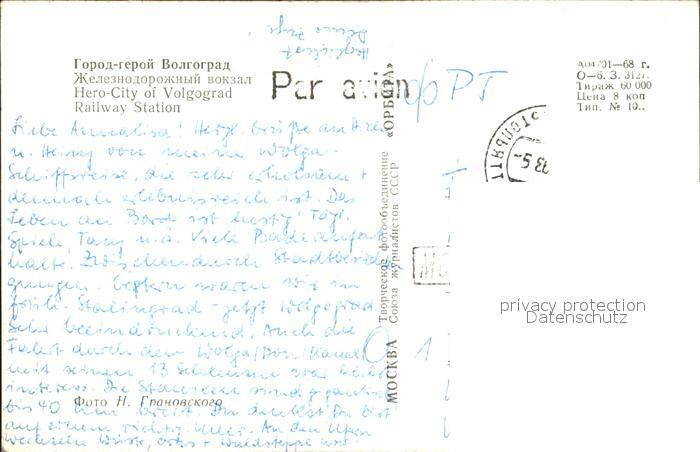 Город-герой Волгоград
Железнодорожный вокзал
Hero-City of Volgograd
Railway Station
Par avion
ФРГ
А04701—68 г.
О—6. З. 312
Тираж 60 000
Цена 8 коп
Тип. № 10
Liebe Annalisa! Herzl. Grüße an Dich
u. Heinz von meiner Wolga-
Schiffsreise, die sehr erholsam +
dennoch erlebnisreich ist. Das
Leben an Bord ist lustig! Tägl.
Spiele, Tanz u.ä. Viele Badeaufent
halte. Zwischendurch Stadtbesich
gungen. Gestern waren wir im
früh. Stalingrad - jetzt Wolgograd
Sehr beeindruckend! Auch die
Fahrt durch den Wolga/Don/Kanal
mit seinen 13 Schleusen war
interess. Die Stauseen sind gigantisch
bis 40 km breit. Du denkst Du bist
auf einem richtig. Meer. An den Ufern
wechseln Wüste, + Waldsteppe usw.
Фото Н. Грановского
МОСКВА
Творческое фотообъединение
Союза журналистов СССР
«ОРБИТА»
privacy protection
Datenschutz